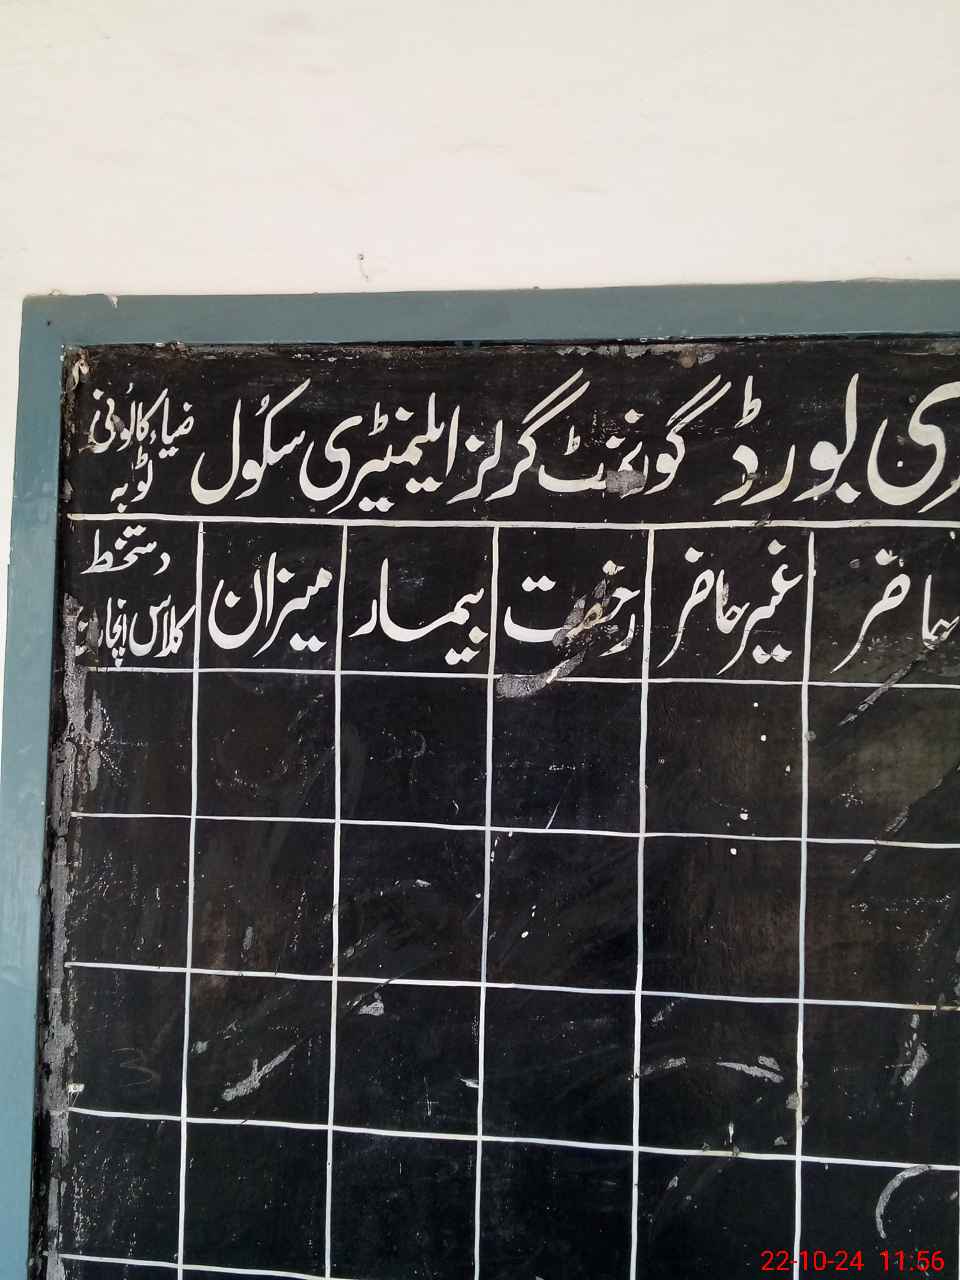 ری بورڈ گورنمنٹ گرلز ایلیمنٹیری سکول ضیاء کالونی ٹوبہ
حاضر غیر حاضر رخصت بیمار میزان دستخط کلاس انچارج
22-10-24 11:56